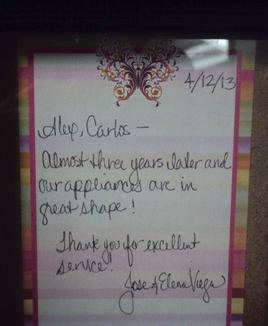 4/12/13
Alex, Carlos —
Almost three years later and
our appliances are in
great shape!
Thank you for excellent
service!
Jose & Elena Vega